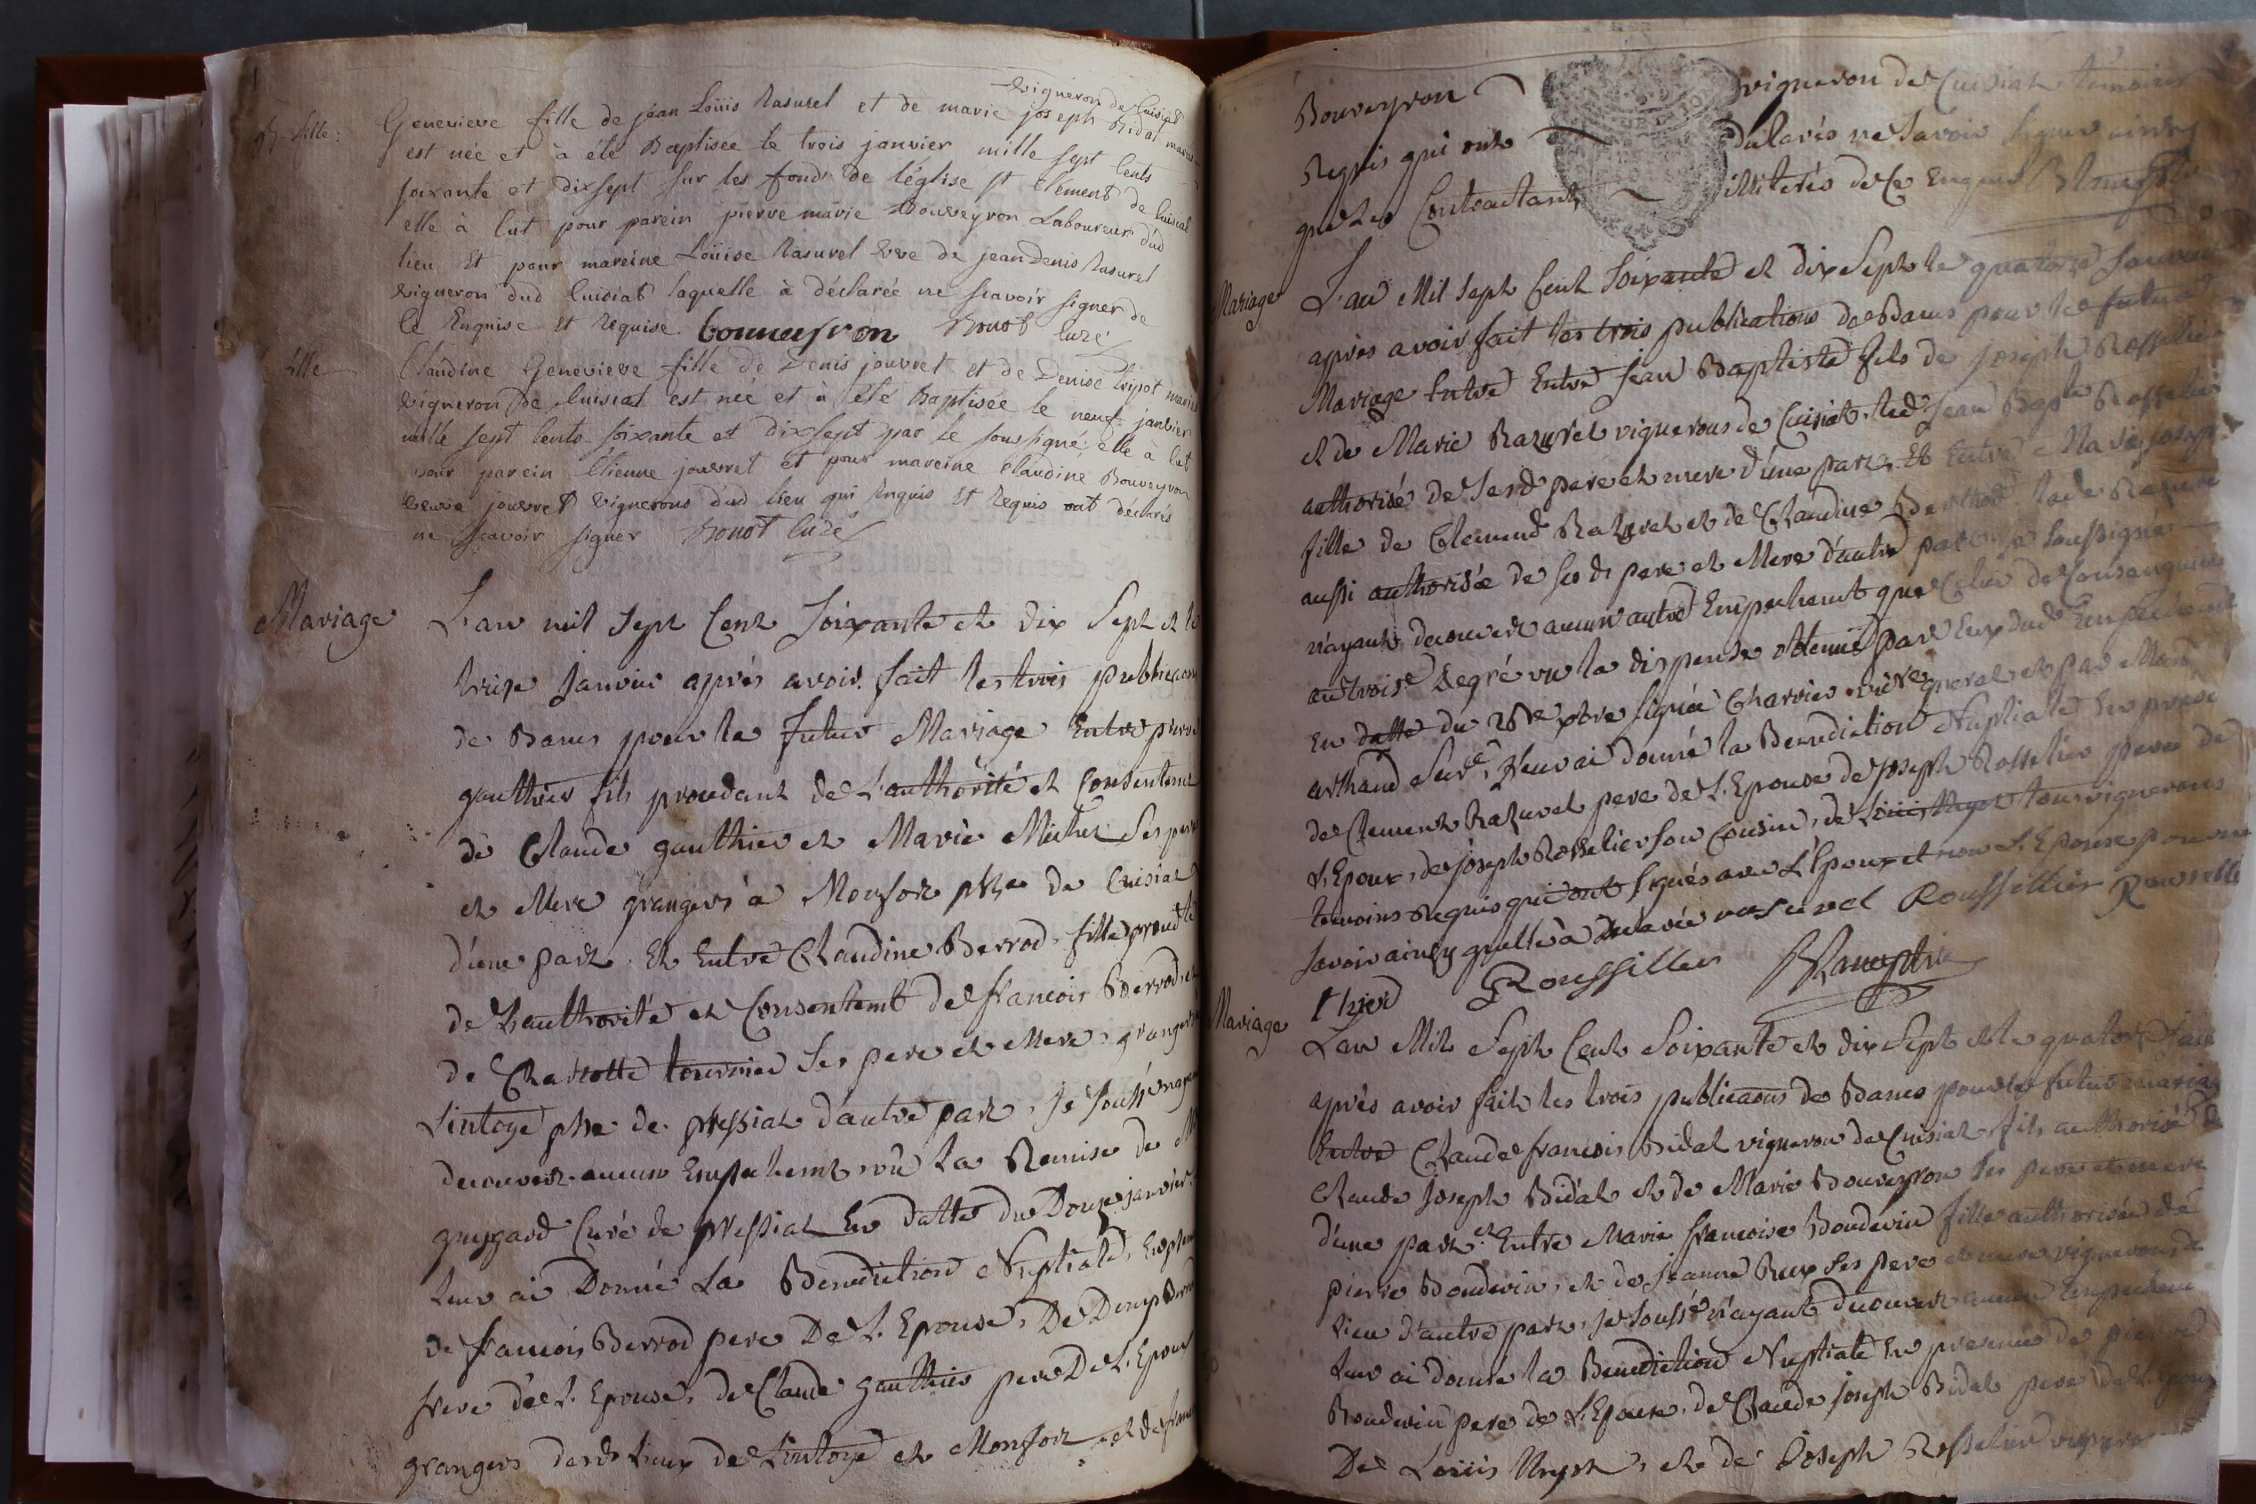 vigneron de Cuisiat
B. fille: Genevieve fille de jean Loüis Rasurel et de marie joseph Bidal mariés
est née et à été Baptisée le trois janvier mille sept Cents
soixante et dixsept sur les fonds de l'église st Clément de Cuisiat
elle à Eut pour parein pierre marie Bouveyron Laboureur dud
lieu Et pour mareine Loüise Rasurel vve de jean denis Rasurel
vigneron dud Cuisiat laquelle à déclarée ne scavoir signer de
Ce Enquise Et Requise. bouueyron Bonot Curé
fille Claudine Genevieve fille de Denis jouvret et de Denise tripot mariés
vigneron de Cuisiat est née et à été Baptisée le neuf janvier
mille sept Cents soixante et dixsept par le soussigné: elle à Eut
pour parein Étienne jouvret et pour mareine Claudine Bouveyron
veuve jouvret vignerons dud lieu qui Enquis Et Requis ont déclarés
ne scavoir signer Bonot Curé
Mariage L'an mil sept Cent soixante et dix sept et le
treize Janvier après avoir fait les trois publicaons
de Bans pour le futur Mariage Entre pierre
gauthier fils procedant de L'authorité et Consentemt
de Claude gauthier et Marie Michel ses pere
et Mere grangers à Monfort psse de Cuisiat
d'une part. Et Entre Claudine Berrod fille procedte
de L'authorité et Consentemt de francois Berrod et
de Charlotte tournier ses pere et Mere, grangers
Lintoye psse de pressiat d'autre part, Je soussé n'ayant
decouvert aucun Empechemt vû la Remise de Mr
guygard Curé de pressiat En datte du Douze janvier
leur ai Donné La Benediction Nuptiale, En presence
de francois Berrod pere De L'Epouse, De Denys Berrod
frere de L'Epouse, de Claude gauthier pere De L'Epoux
grangers desds lieux de Lintoye et Monfort, et de francois
Bouveyron vigneron de Cuisiat temoins
Requis qui ont declarés ne savoir signer ainsy
que les Contractants illiterés de Ce Enquis
Mariage L'an Mil sept Cent soixante et dix sept le quatorze Janvier
après avoir fait les trois publications de Bans pour le futur
Mariage Entre Entre Jean Baptiste fils de Joseph Rossellier
et de Marie Razurel vignerons de Cuisiat, led Jean Bapte Rossellier
authorisé de sesd pere et mere d'une part, Et Entre Marie joseph
fille de Clement Razurel et de Claudine Berthod lade Razurel
aussi authorisée de ses ds pere et Mere d'autre part, Je soussigné
n'ayant decouvert aucun autre Empechemt que Celui de Consanguinité
au troise Degré vu la dispense obtenue par Eux dud Empechemt
En datte du 28e xbre signée Charrier vicre general et par Mond
arthaud secre, Leur ai donné la Benediction Nuptiale En presence
de Clement Razurel pere de L'Epouse de joseph Rossellier pere de
L'Epoux, de joseph Rossellier son Cousin, de Loüis tous vignerons
temoins Requis qui ont signés avec L'Epoux et non L'Epouse pour ne
savoir ainsy qu'elle à declarée rasurel Roussillier
Roussiller
Mariage L'an Mil sept Cent soixante et dix sept et le quatorze Janv
après avoir fait les trois publicaons de Bans pour le futur mariage
Entre Claude francois Bidal vigneron de Cuisiat fils authorisé de
Claude Joseph Bidal et de Marie Bouveyron ses pere et mere
d'une part et Entre Marie francoise Boudevin fille authorisée de
pierre Boudevin, et de Jeanne Rux ses pere et mere vignerons du
lieu d'autre part, Je soussé n'ayant decouvert aucun Empechemt
leur ai donné la Benediction Nuptiale En presence de pierre
Boudevin pere de L'Epouse, de Claude joseph Bidal pere de L'Epoux
De Loüis , et de Joseph Rossellier